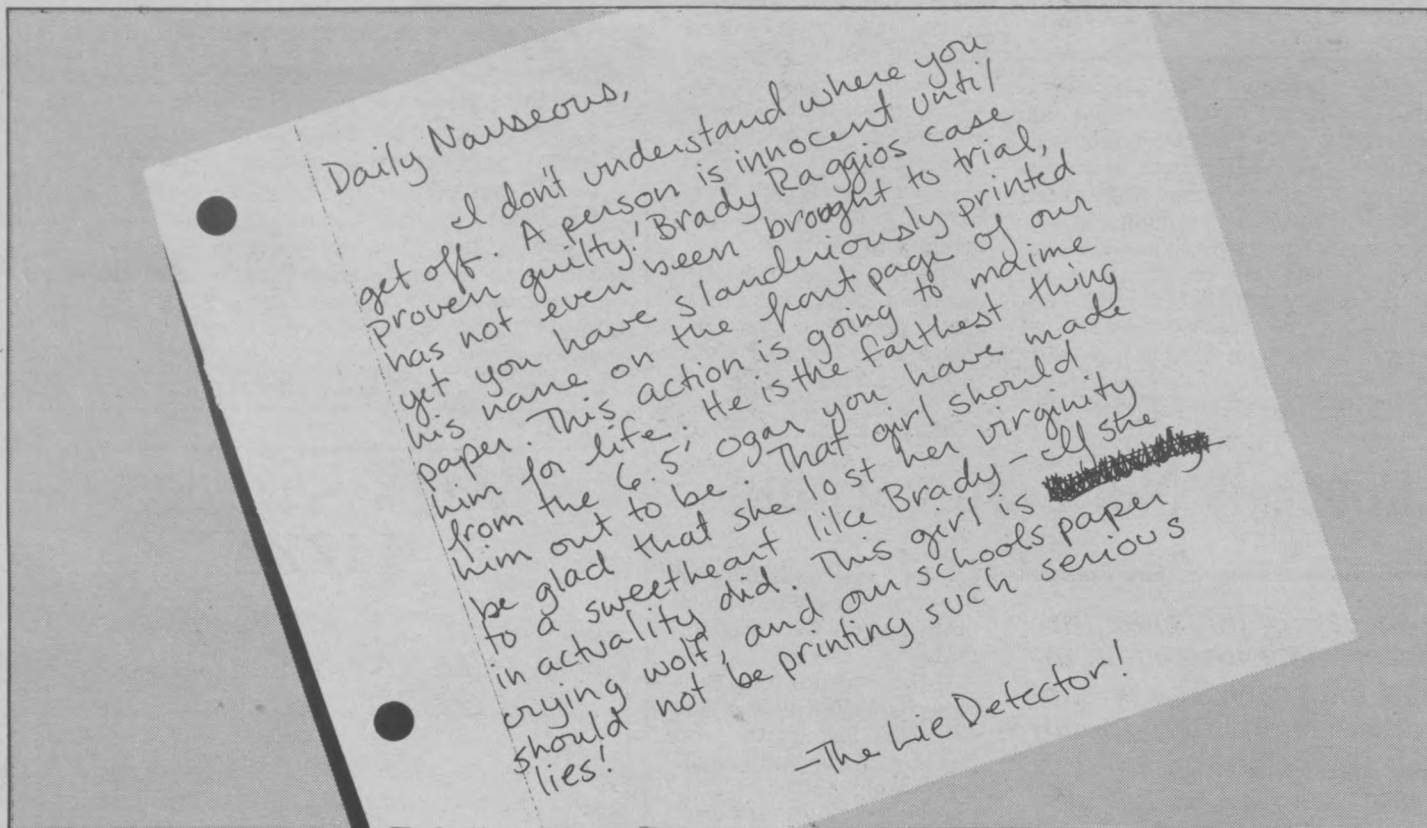 Daily Nauseous,
I don't understand where you
get off. A person is innocent until
proven guilty! Brady Raggios case
has not even been brought to trial,
yet you have slanderiously printed
his name on the front page of our
paper. This action is going to maime
him for life. He is the farthest thing
from the 6.5' ogar you have made
him out to be. That girl should
be glad that she lost her virginity
to a sweetheart like Brady - If she
in actuality did. This girl is
crying wolf, and our schools paper
should not be printing such serious
lies!
-The Lie Detector!